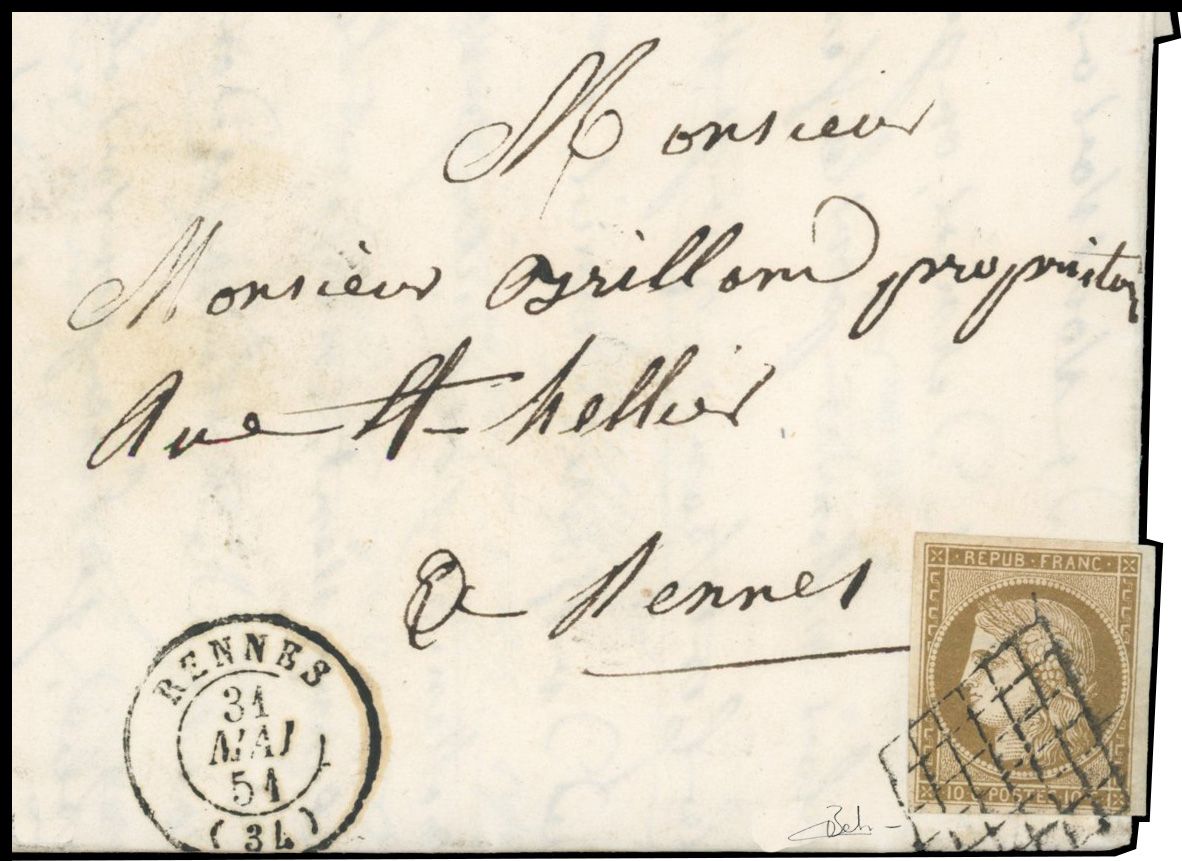 Monsieur
Monsieur Grillard propriétai
Rue St hellier
a Rennes
REPUB·FRANC·
10 POSTES 10
RENNES
31
MAI
51
(34)